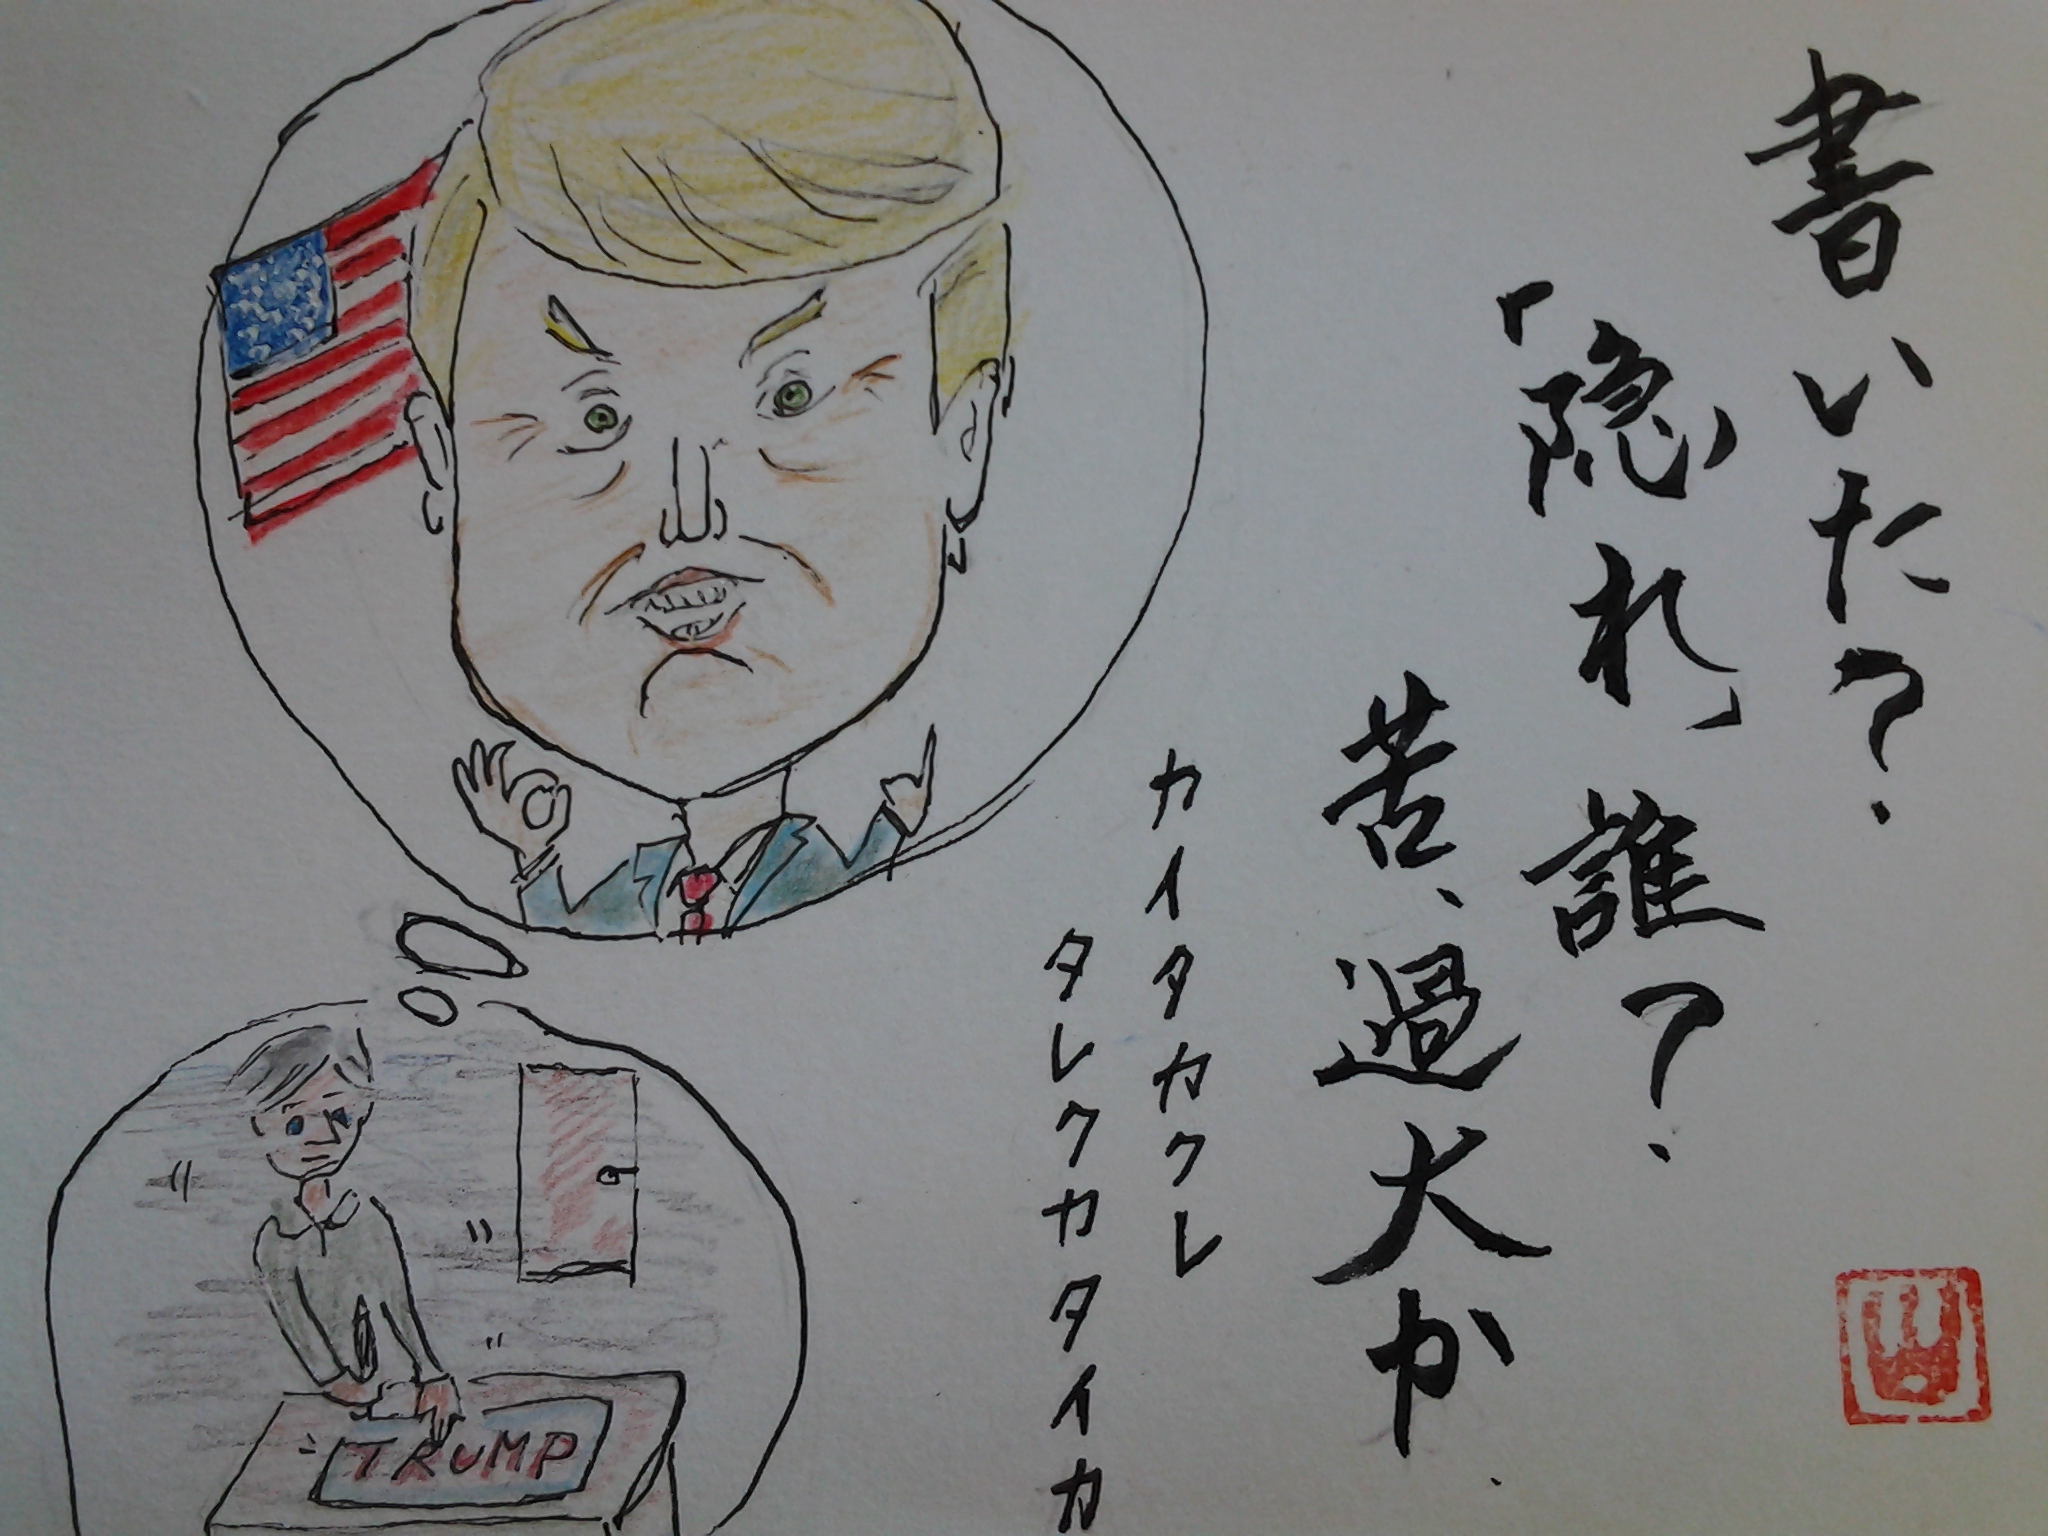 書いた?
「隠れ」誰?
苦、過大か
カイタカクレ
タレクカタイカ
TRUMP